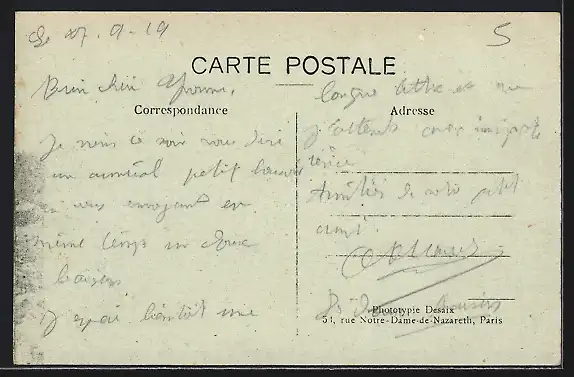 Le 27. 9-19
5
CARTE POSTALE
Bien cher Yvonne,
Correspondance
Je viens ce soir vous dire
un amical petit bonsoir
en vous envoyant en
même temps un doux
baiser
J'espère bientôt une
longue lettre
Adresse
j'attends avec
Amitiés de votre petit
ami
Phototypie Desaix
54, rue Notre-Dame-de-Nazareth, Paris